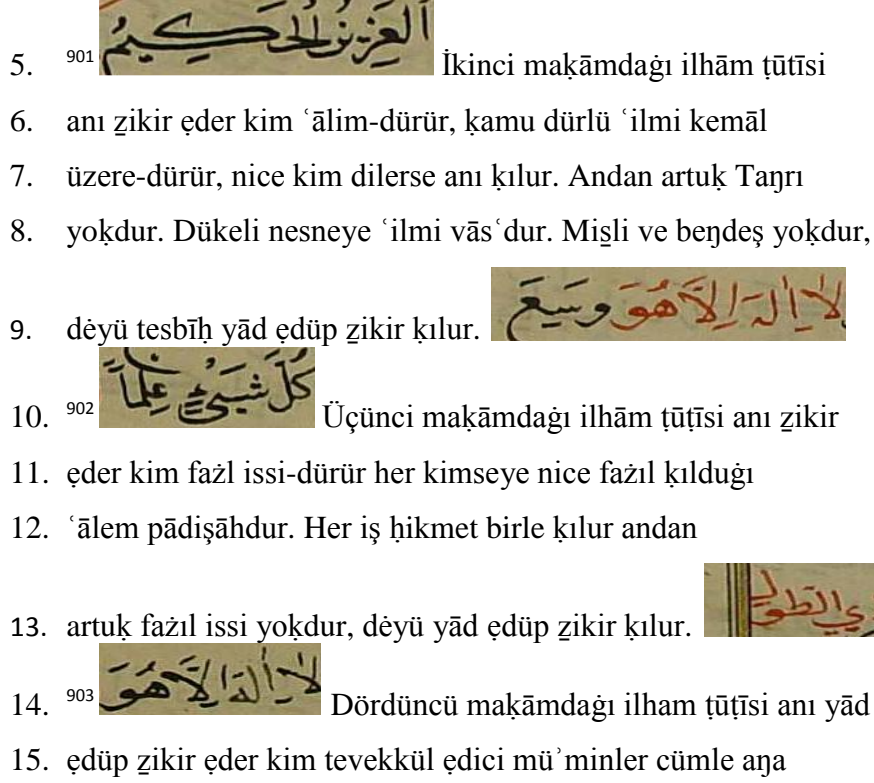 5. 901 اَلْعَزِيزُ الْحَكِيمُ İkinci maḳāmdaġı ilhām ṭūtīsi
6. anı ẕikir ẹder kim ʿālim-dürür, ḳamu dürlü ʿilmi kemāl
7. üzere-dürür, nice kim dilerse anı ḳılur. Andan artuḳ Taŋrı
8. yoḳdur. Dükeli nesneye ʿilmi vāsʿdur. Mis̱li ve beŋdeş yoḳdur,
9. dėyü tesbīḥ yād ẹdüp ẕikir ḳılur. لَا اِلٰهَ اِلَّا هُوَ وَسِيعَ
10. 902 كُلَّ شَيْءٍ عِلْماً Üçünci maḳāmdaġı ilhām ṭūṭīsi anı ẕikir
11. ẹder kim fażl issi-dürür her kimseye nice fażıl ḳılduġı
12. ʿālem pādişāhdur. Her iş ḥikmet birle ḳılur andan
13. artuḳ fażıl issi yoḳdur, dėyü yād ẹdüp ẕikir ḳılur. ذِي الطَّوْلِ
14. 903 لَا اِلٰهَ اِلَّا هُوَ Dördüncü maḳāmdaġı ilham ṭūṭīsi anı yād
15. ẹdüp ẕikir ẹder kim tevekkül ẹdici müʾminler cümle aŋa